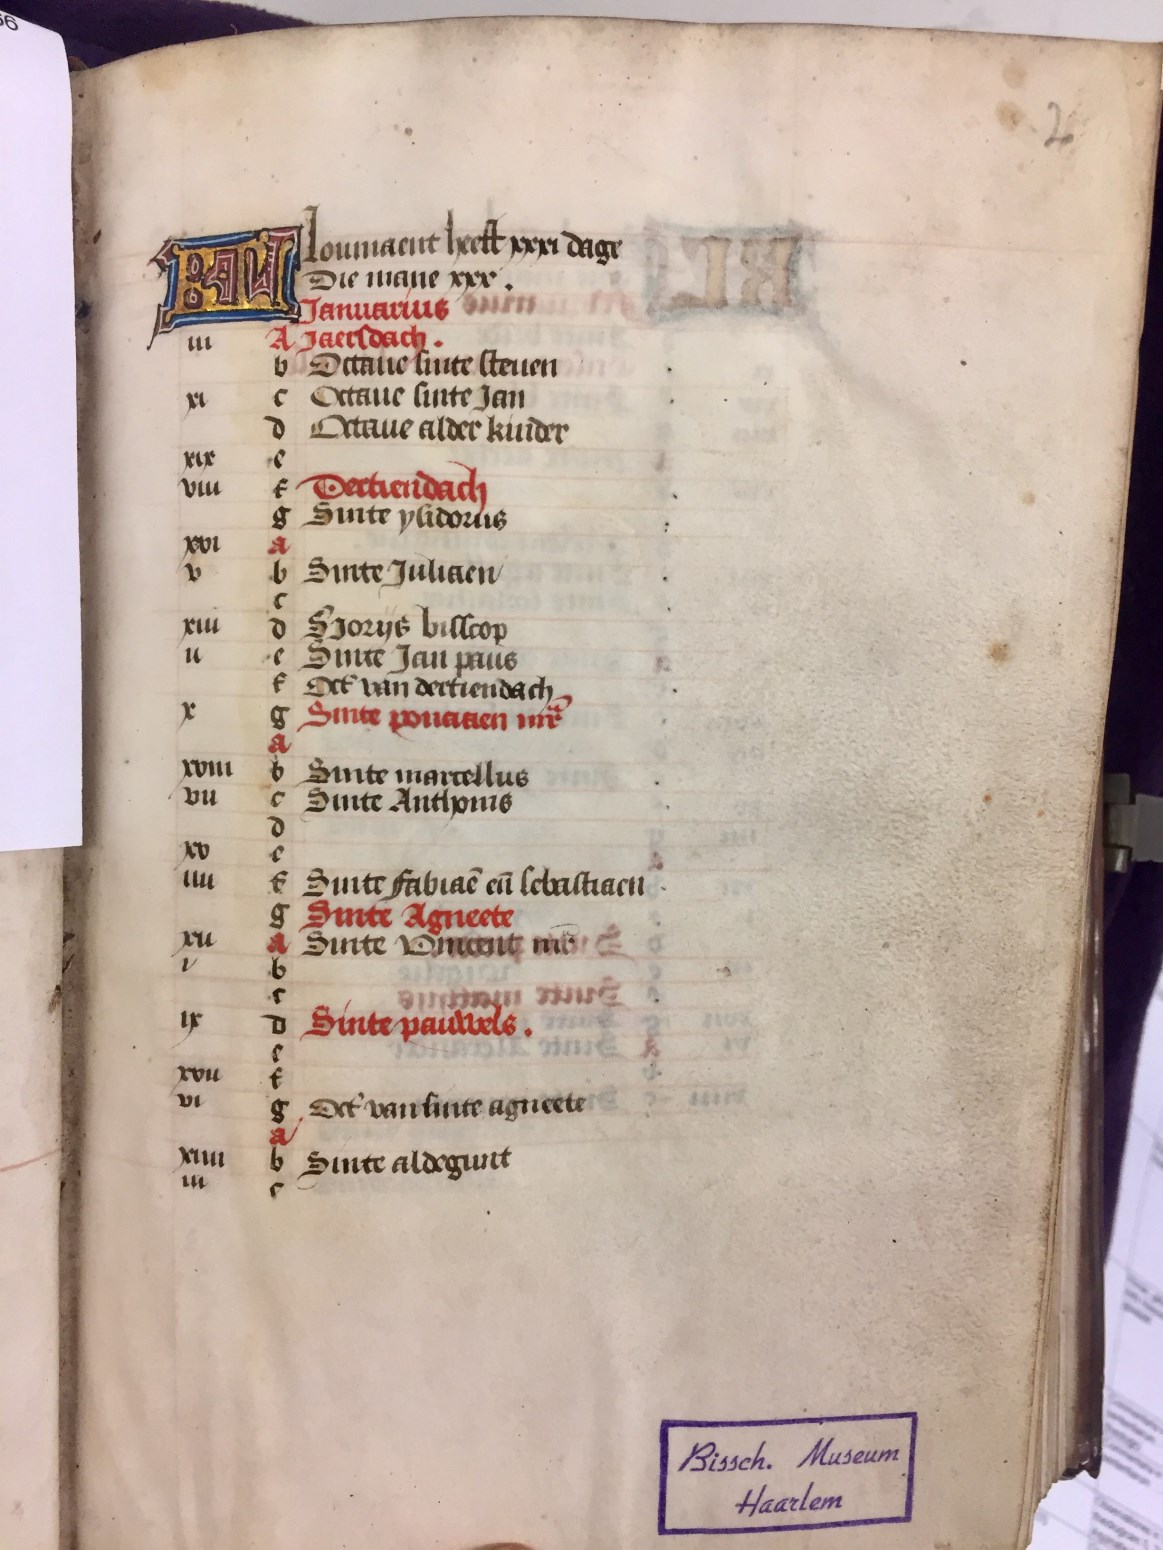 2
KL Loumaent heeft xxxi dage
Die mane xxx.
Januarius
iii A Jaersdach.
b Octaue sinte steuen
xi c Octaue sinte Jan
d Octaue alder kinder
xix e
viii f Dertiendach
g Sinte ysidorus
xvi a
v b Sinte Juliaen
c
xiii d S Jorijs bisscop
ii e Sinte Jan paus
f Oct van dertiendach
x g Sinte ponciaen mr
a
xviii b Sinte marcellus
vii c Sinte Anthonis
d
xv e
iiii f Sinte fabiaē eñ sebastiaen
g Sinte Agneete
xii a Sinte Vincent mr
i b
c
ix d Sinte pauwels.
e
xvii f
vi g Oct van sinte agneete
a
xiiii b Sinte aldegunt
iii c
Bissch. Museum
Haarlem